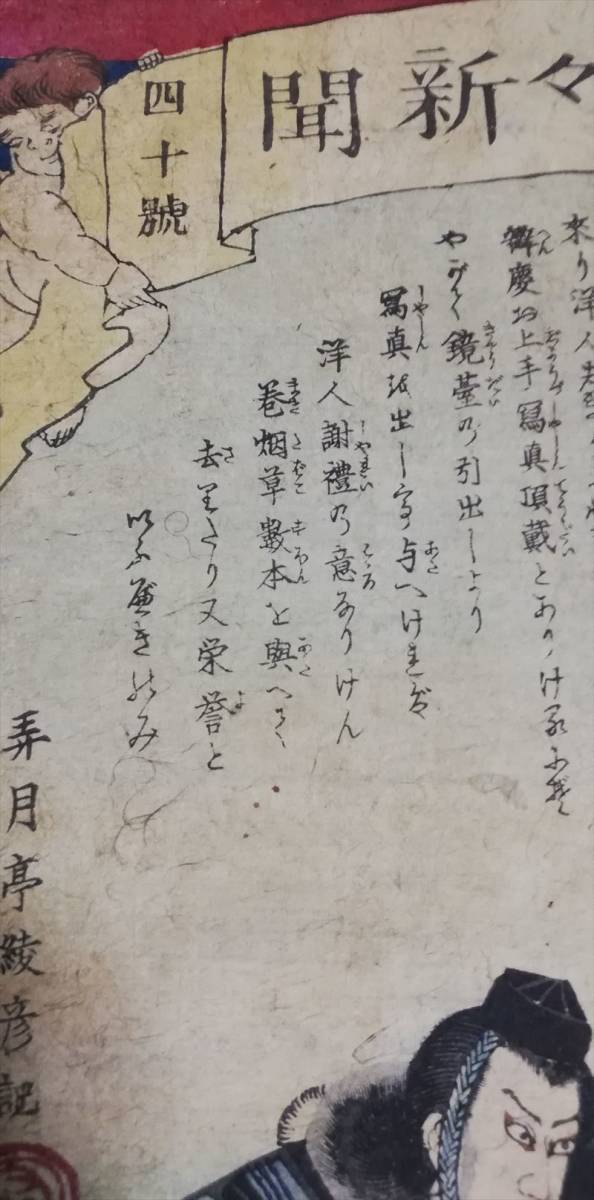 々新聞
四十號
来り洋人
辨慶お上手寫真頂戴とありける
やがて鏡臺の引出しより
寫真を出して与へければ
洋人謝禮の意なりけん
巻烟草數本を與へて
去りたり又栄誉と
いふべきのみ
弄月亭綾彦記